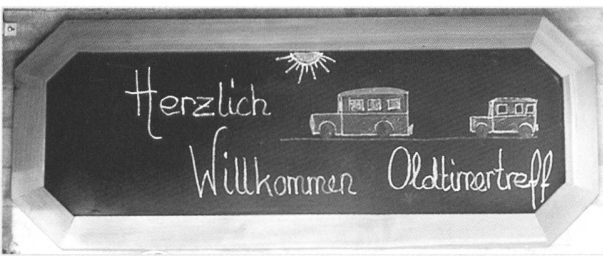 Herzlich
Willkommen Oldtimertreff